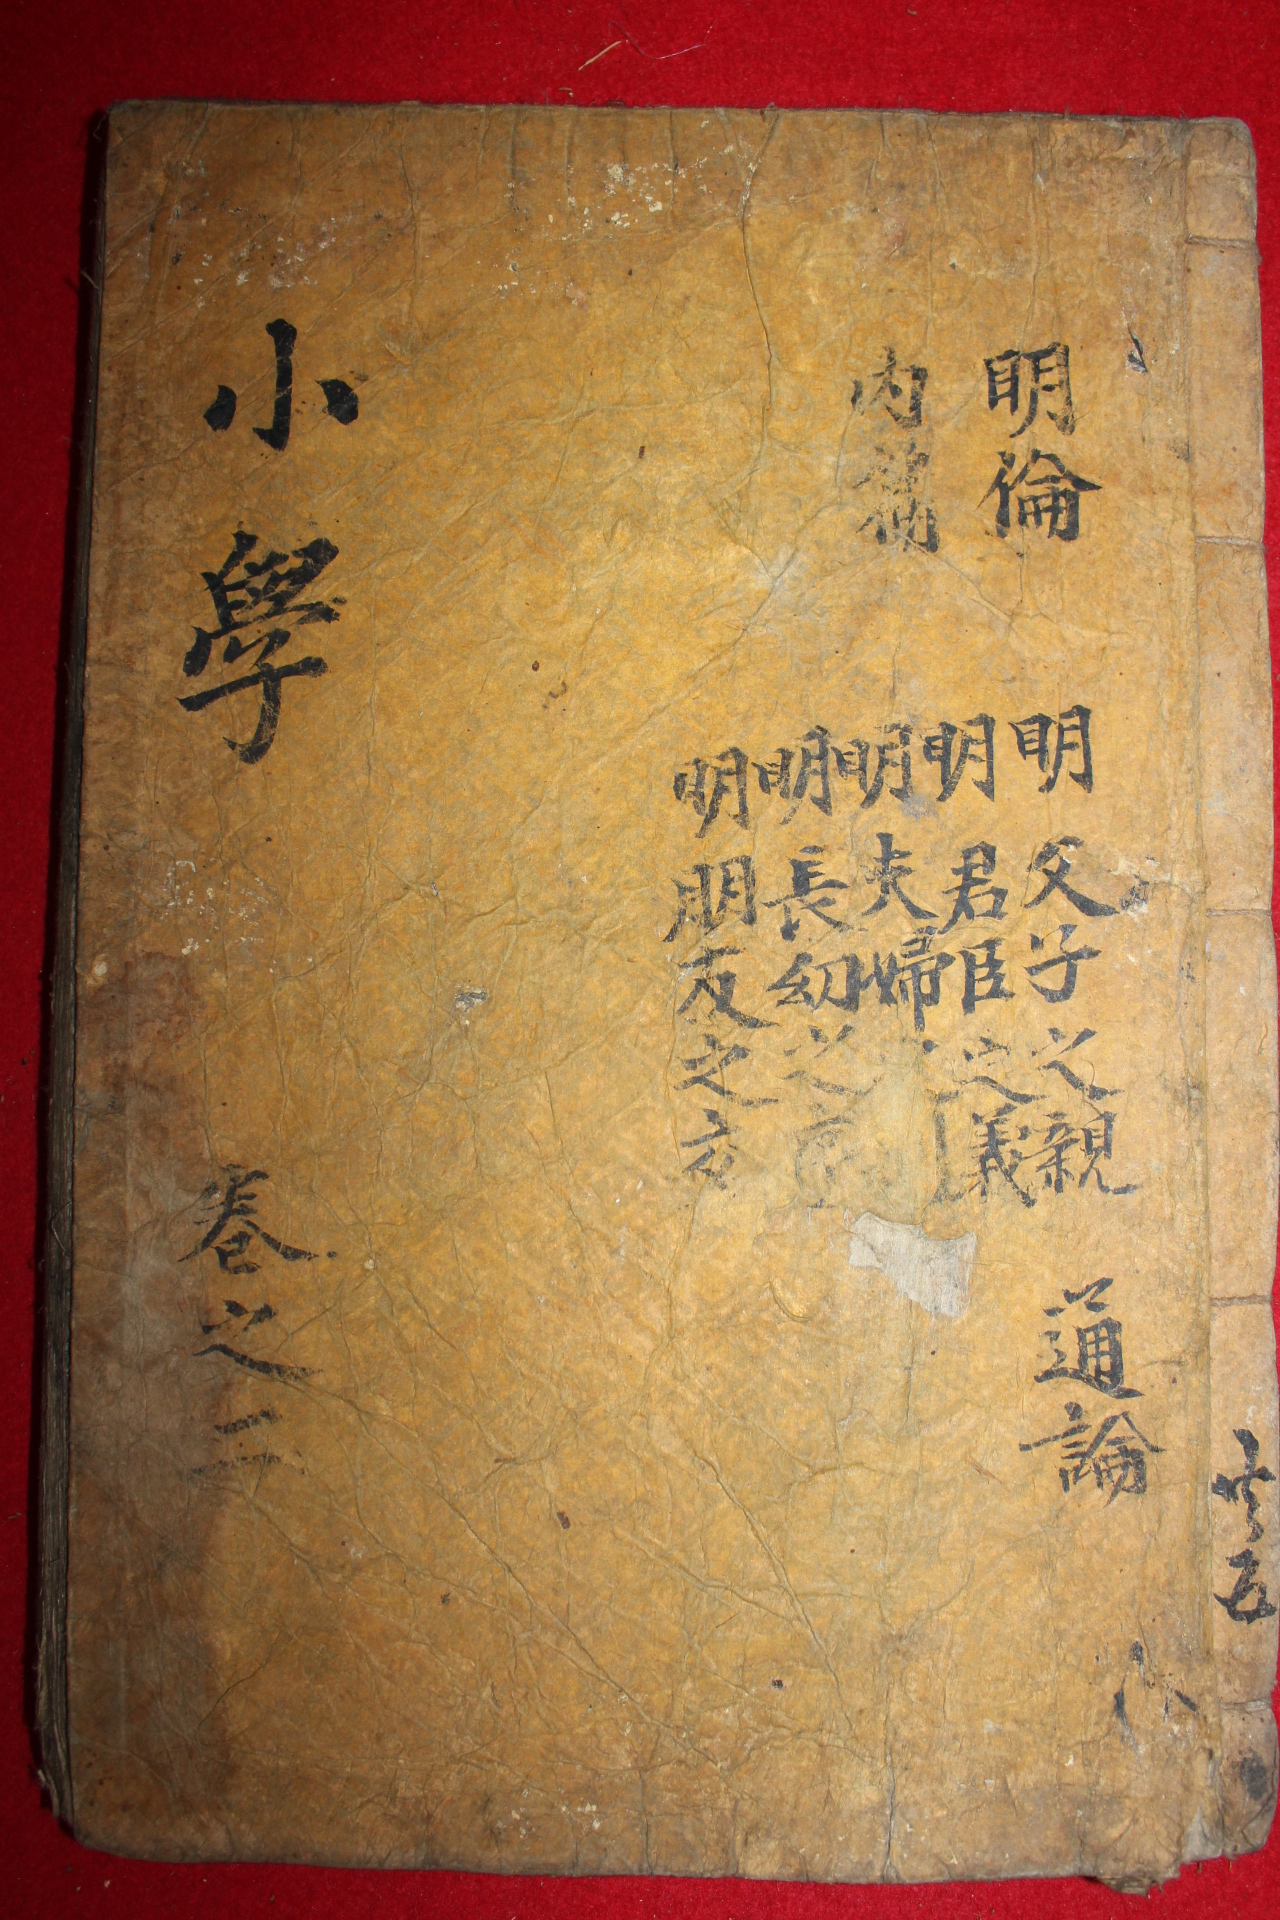 明倫
內篇
明父子之親
明君臣之義
明夫婦
明長幼之序
明朋友之交
通論
小學
卷之二
共五